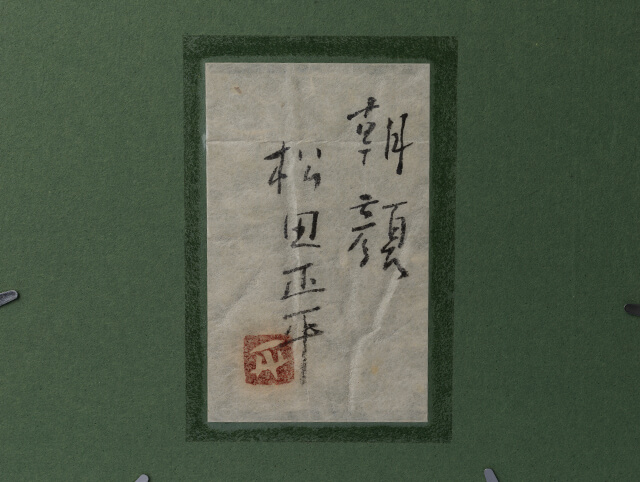 朝顔
松田正平